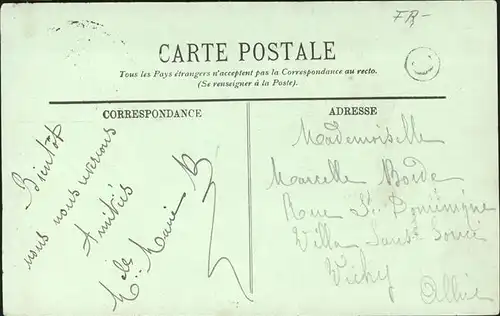 FR-
CARTE POSTALE
Tous les Pays étrangers n'acceptent pas la Correspondance au recto.
(Se renseigner à la Poste).
CORRESPONDANCE
Bientôt
nous nous verrons
Amitiés
Mlle Marie B
ADRESSE
Mademoiselle
Marcelle Borde
Rue St Dominique
Villa Sans Souci
Vichy
Allier